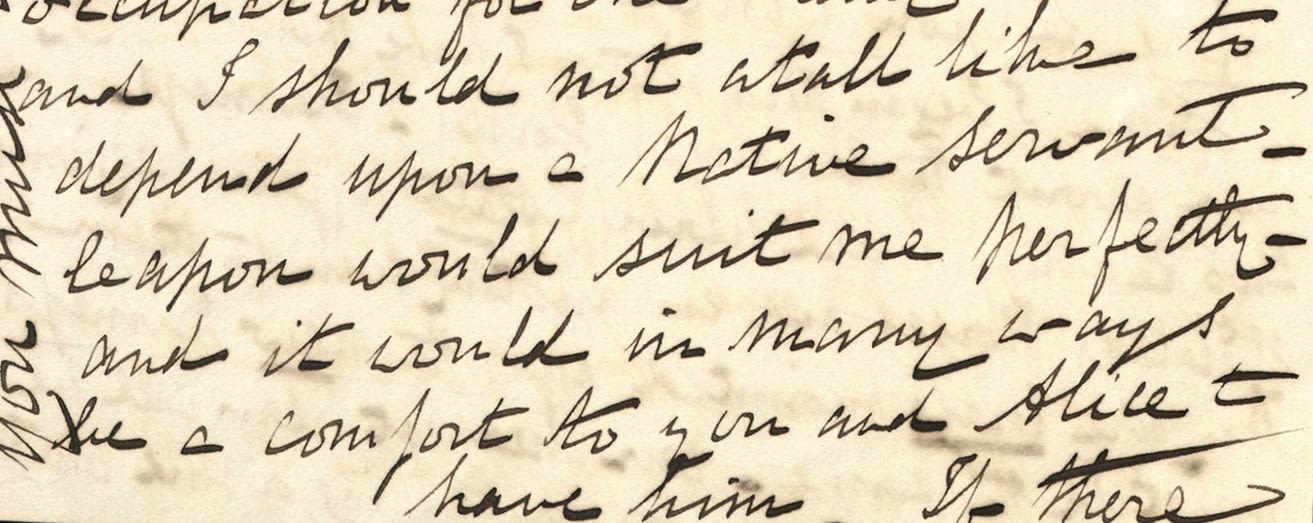 occupation for one
and I should not atall like to
depend upon a Native servant -
Capon would suit me perfectly -
and it would in many ways
be a comfort to you and Alice to
have him. If there
You must